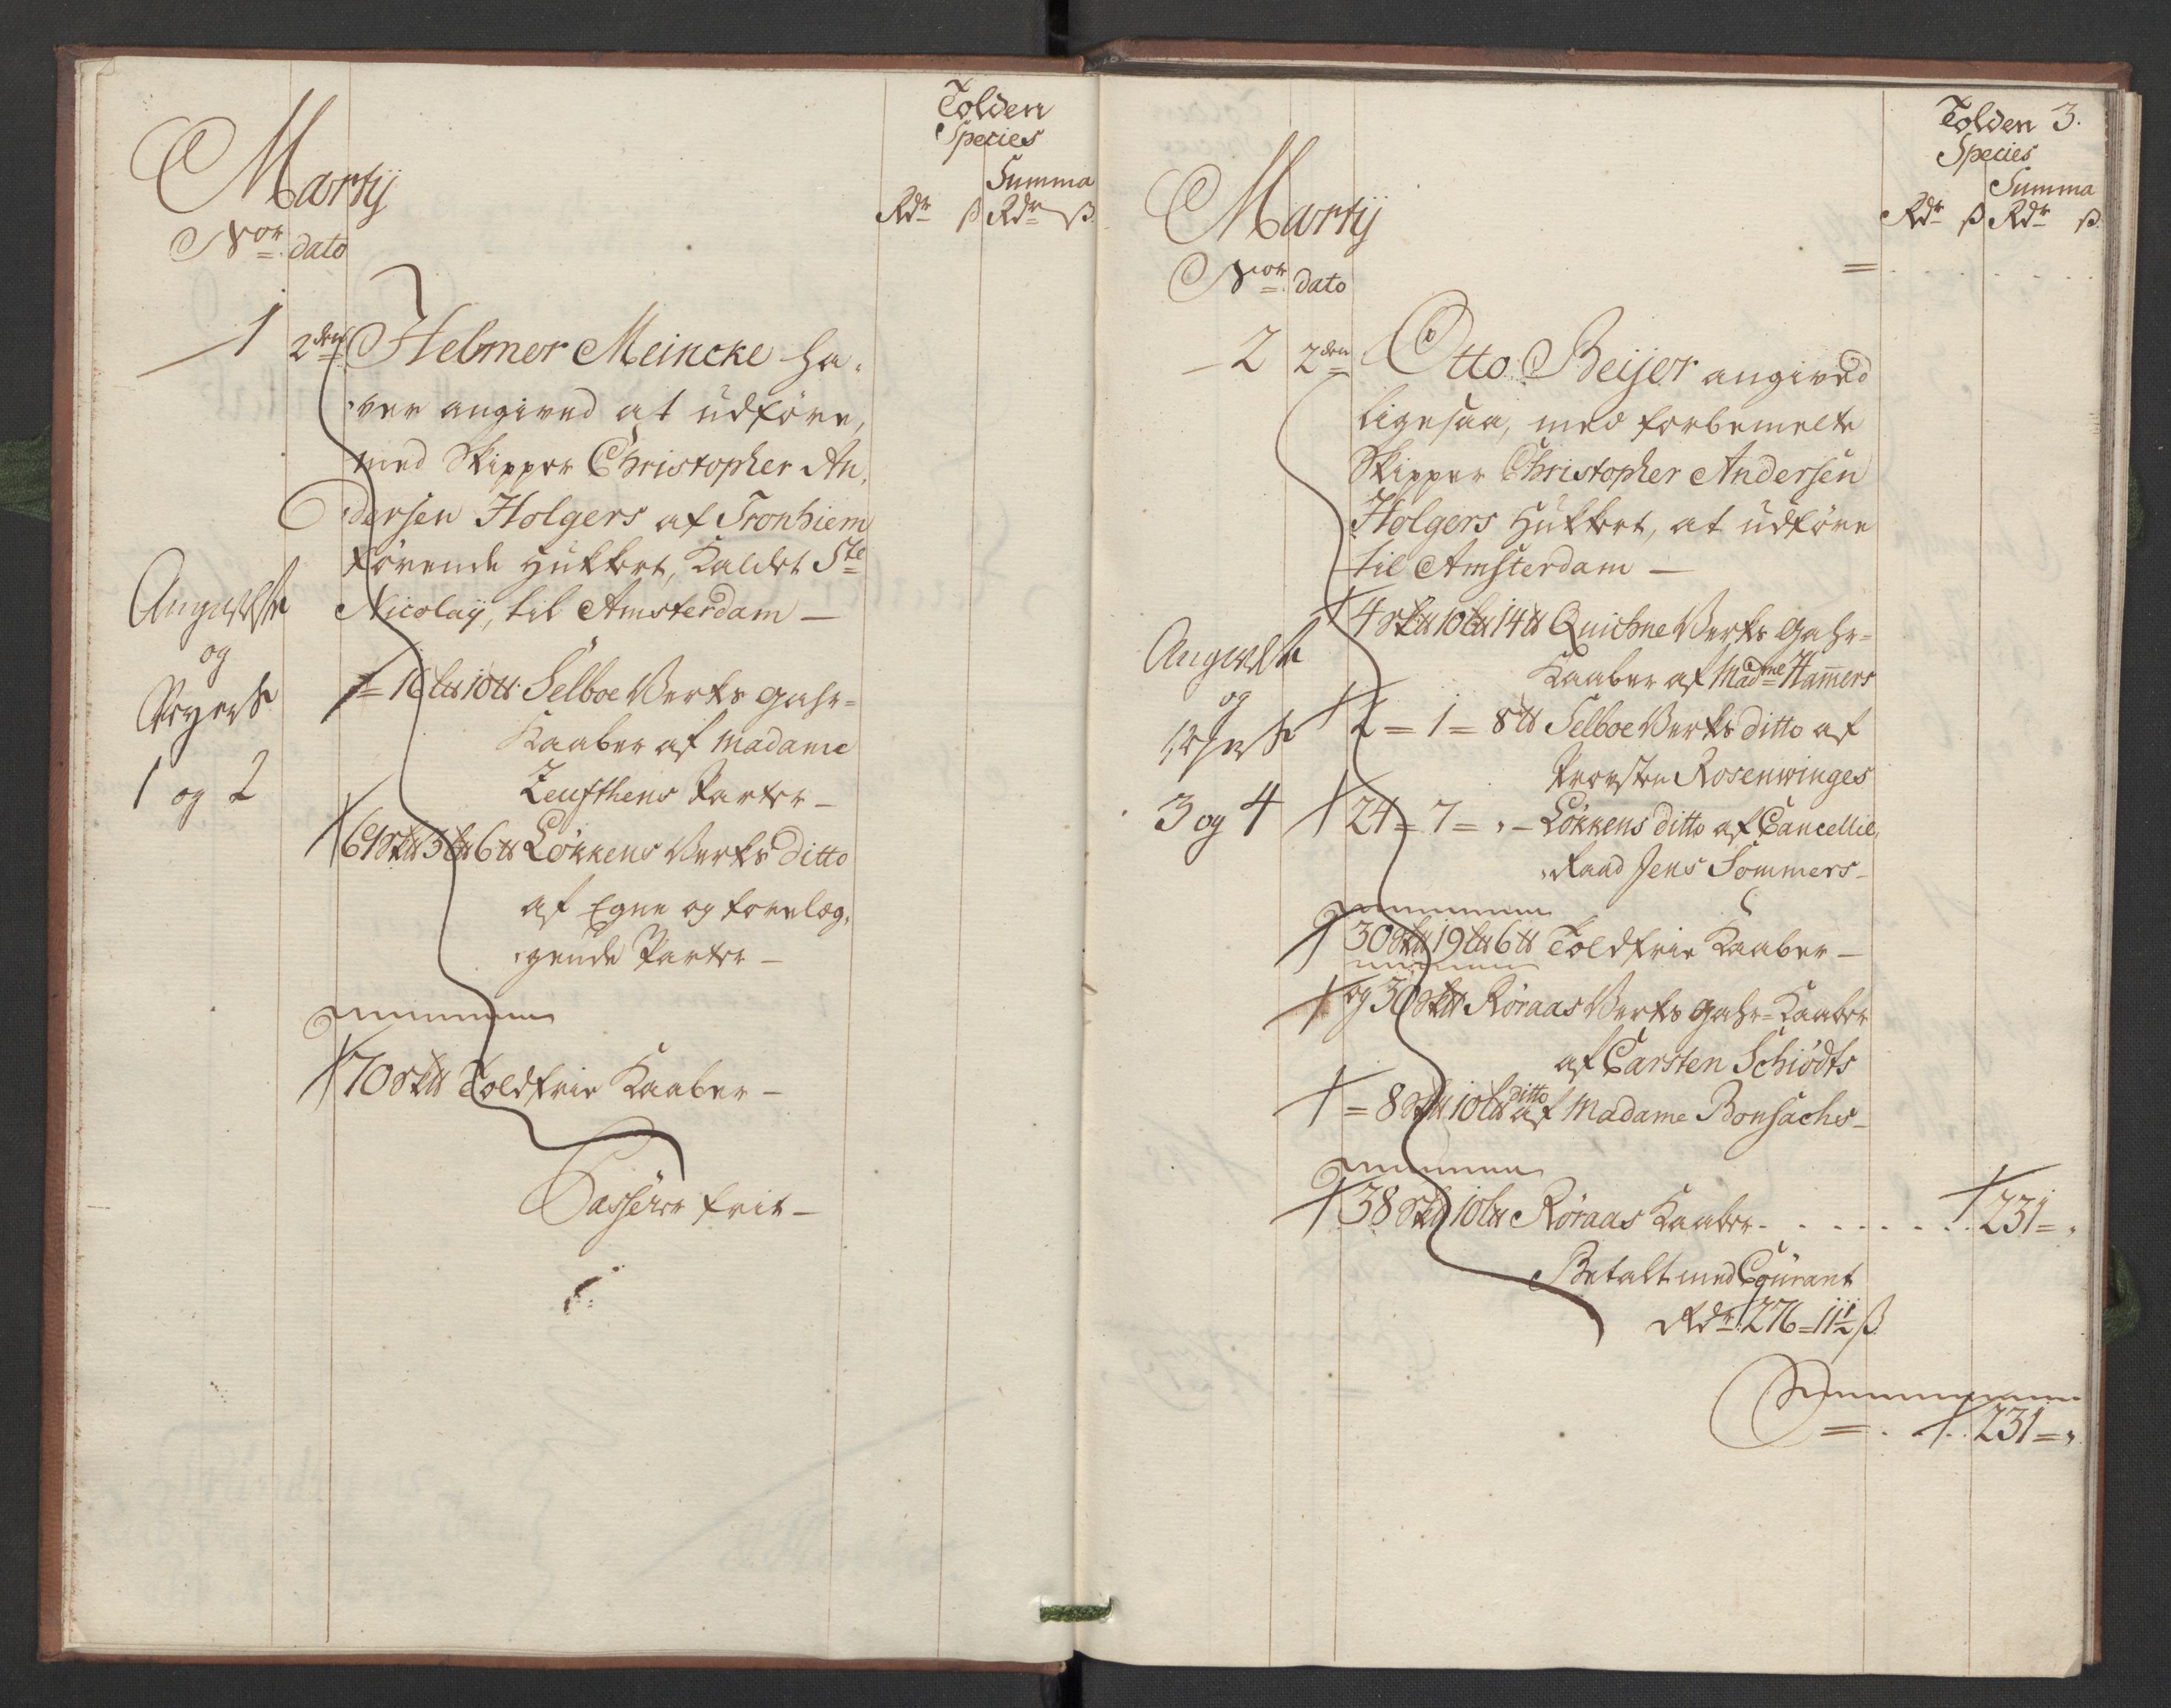 Tolden
Species
Summa
Rdr ß Rdr ß
Martij
Nor dato
1 2den Helmer Meincke ha-
ver angived at udföre,
med Skipper Christopher An-
dersen Holgers af Tronhiem
förende Hukkert, Kaldet Ste
Nicolaij, til Amsterdam —
Angivelse
og
1 og 2
= 16 L℔ 10 ℔ Selboe Verks gahr=
Kaaber af Madame
Leufthens Parter —
69 Sk℔ 3 L℔ 6 ℔ Lökkens Verks ditto
af Egne og forelæg-
gende Parter —
70 Sk℔ Toldfrie Kaaber —
Passerer frit —
Tolden 3.
Species
Summa
Rdr ß Rdr ß
Martij
Nor dato
2 2den Otto Beijer angived
ligesaa, med forbemelte
Skipper Christopher Andersen
Holgers Hukkert, at udföre
til Amsterdam —
Angivelse
og
3 og 4
4 Sk℔ 10 L℔ 14 ℔ Quichne Verks gahr=
Kaaber af Madme Ham̄ers
2 = 1 = 8 ℔ Selboe Verks ditto af
Provsten Rosenwinges
24 = 7 = „ — Lökkens ditto af Cancellie-
Raad Jens Sommers —
30 Sk℔ 19 L℔ 6 ℔ Toldfrie Kaaber —
og 30 Sk℔ Röraas Verks gahr=Kaaber
af Carsten Schiödts
= 8 Sk℔ 10 L℔ ditto af Madame Bonsachs —
38 Sk℔ 10 L℔ Röraas Kaaber . . . . . . . 231 = „
Betalt med Courant
Rdr 276 = 11½ ß
= . . 231 = „